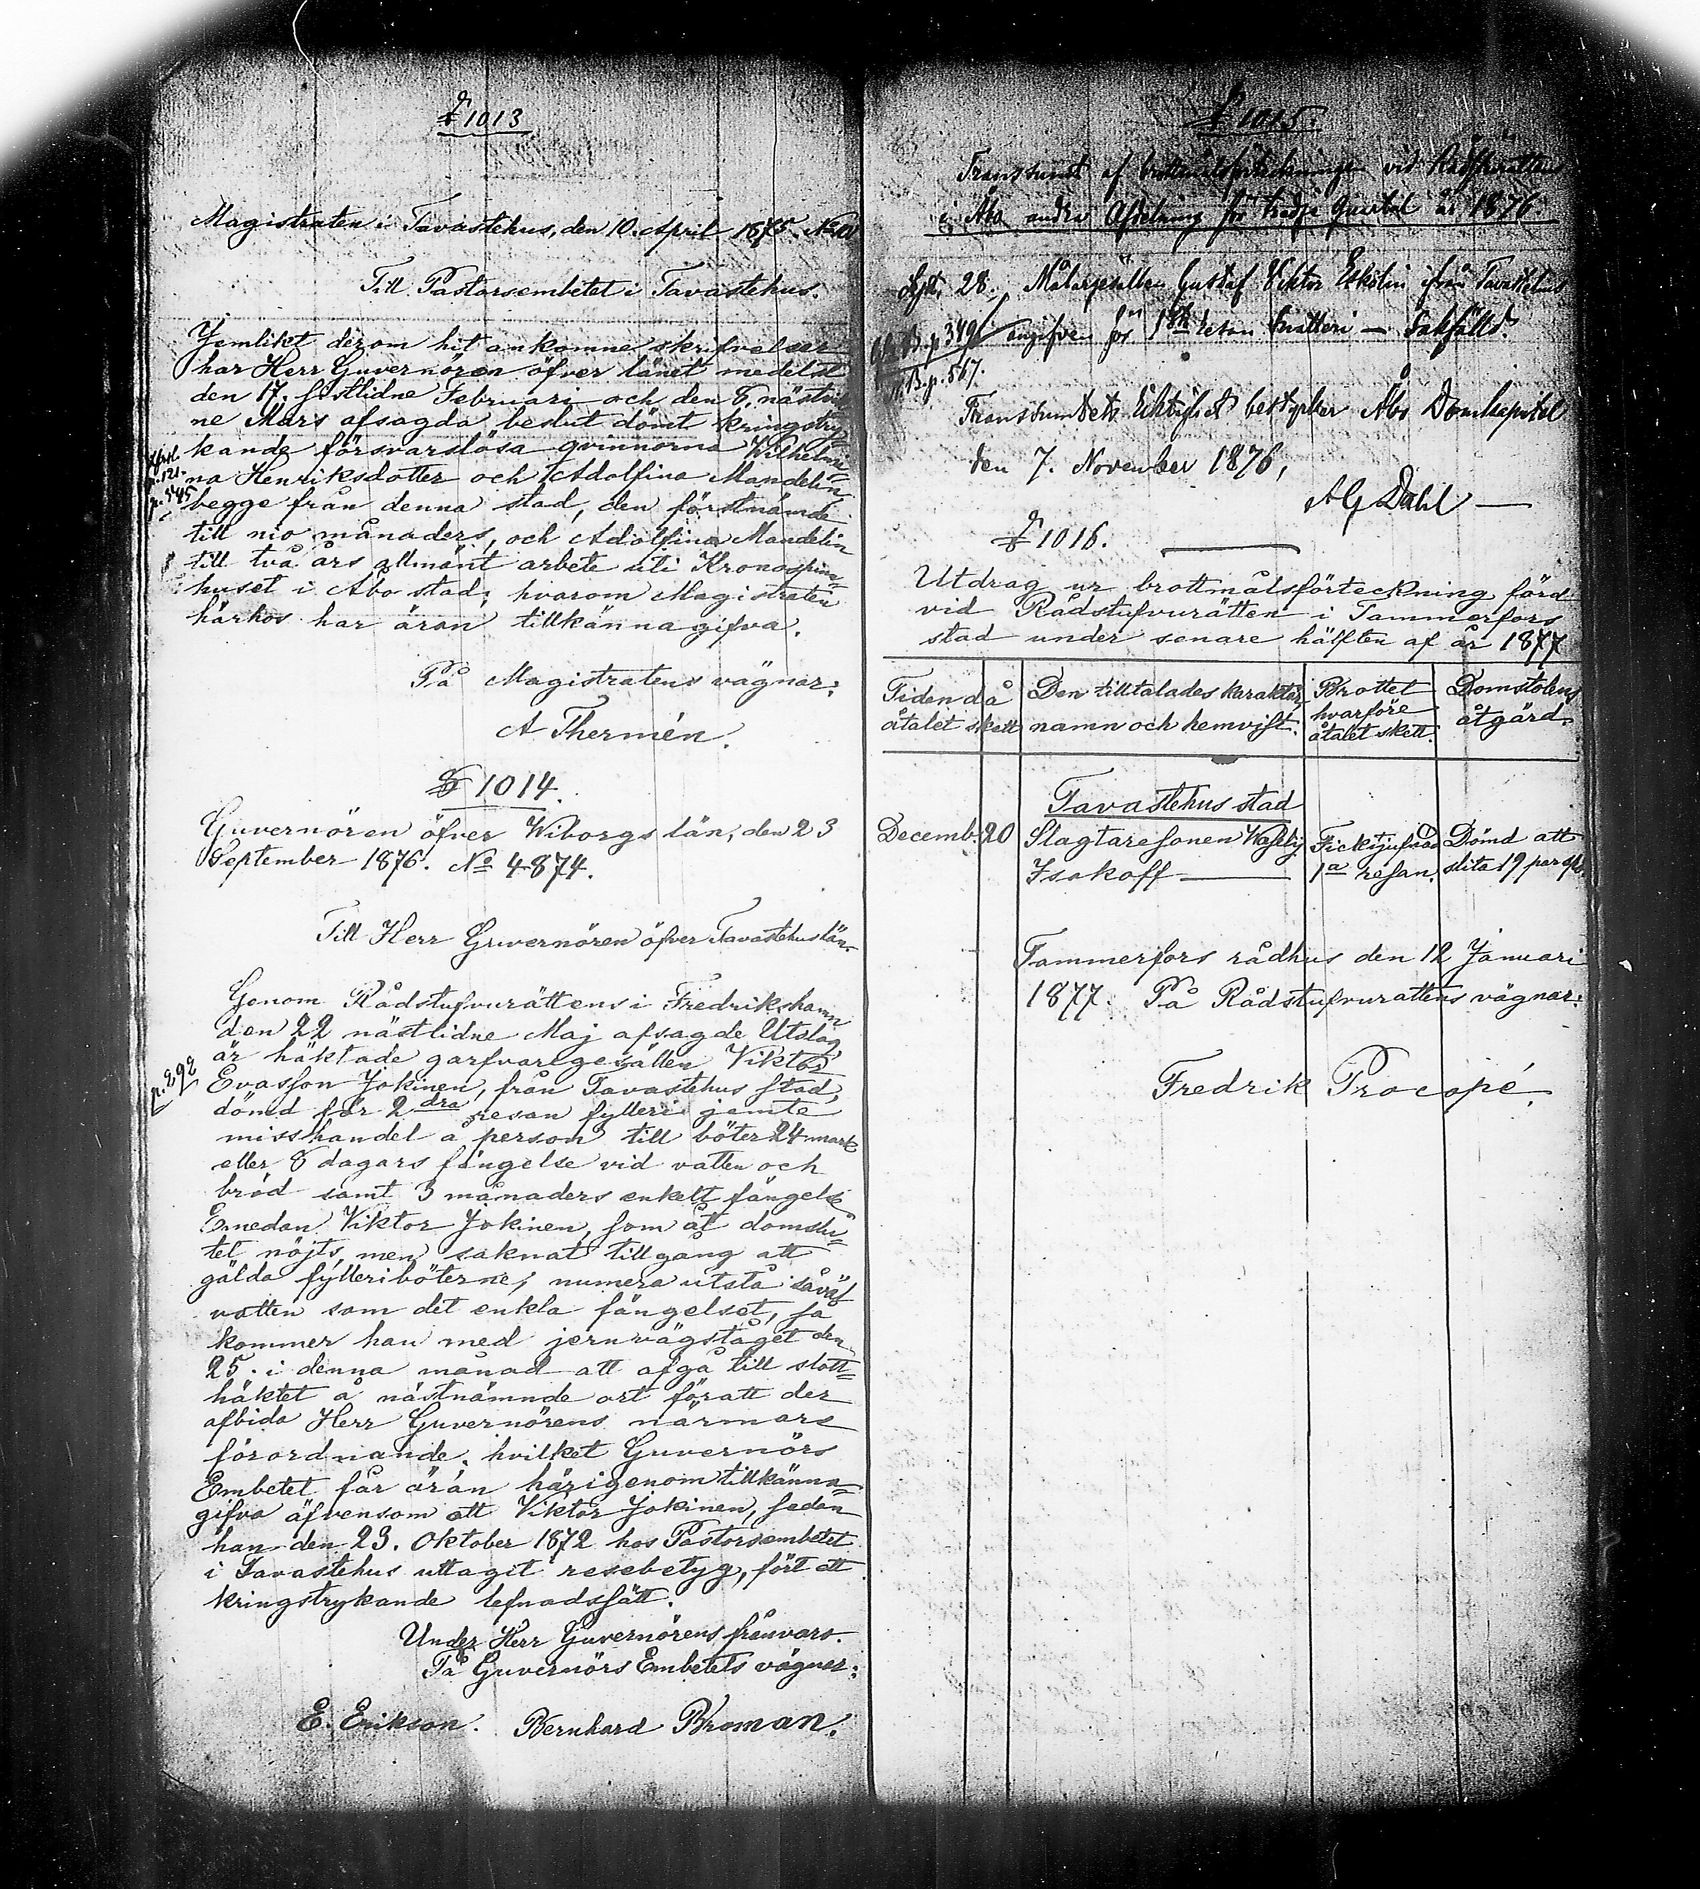 § 1013
Magistraten i Tavastehus, den 10. April 1875. No
Till Pastorsembetet i Tavastehus.
Jemlikt derom hit ankomne skrifvelser
har Herr Guvernören öfver länet medelst
den 17. sistlidne Februari och den 8. nästvik
ne Mars afsagda beslut dömt kringstry-
kande försvarslösa qvinnorna Wilhelmi-
na Henriksdotter och Adolfina Mandelin
begge från denna stad, den förstnämde
till nio månaders, och Adolfina Mandelin
till två års allmänt arbete uti Kronospinn-
huset i Åbo stad; hvarom Magistraten
härhos har äran tillkännagifva.
På Magistratens vägnar:
A Thermén.
§ 1014.
Guvernören öfver Wiborgs län, den 23
September 1876. No 4874.
Till Herr Guvernören öfver Tavastehus län.
Genom Rådstufvurättens i Fredrikshamn
den 22 nästlidne Maj afsagde Utslag
är häktade garfvaregesällen Viktor
p. 292
Evasson Jokinen, från Tavastehus stad,
dömd för 2dra resan fylleri jemte
misshandel å person till böter 24 mark
eller 8 dagars fängelse vid vatten och
bröd samt 3 månaders enkelt fängelse
Emedan Viktor Jokinen, som åt domslu-
tet nöjts, men saknat tillgang att
gälda fylleriböterne, numera utstå såväl
vatten som det enkla fängelset, så
kommer han med jernvägståget den
25. i denna månad att afgå till slott-
häktet å nästnämnde ort för att der
afbida Herr Guvernörens närmare
förordnande, hvilket Guvernörs
Embetet får äran härigenom tillkänna-
gifva äfvensom att Viktor Jokinen, sedan
han den 23. Oktober 1872 hos Pastorsembetet
i Tavastehus uttagit resebetyg, fört ett
kringstrykande lefnadssätt.
Under Herr Guvernörens frånvaro.
På Guvernörs Embetets vägnar:
E. Erikson. Bernhard Broman.
§ 1015.
Transsumt af brottmålsförteckningen vid Rådstufvurätten
i Åbo andra Afdelning för tredje qvartal år 1876.
Sept. 28. Målaregesällen Gustaf Viktor Eskolin ifrån Tavastehus
p 349 angifven för 1sta resan snatteri — Sakfälld.
p. 567.
Transsumtets riktighet bestyrker Åbo Domkapitel
den 7. November 1876,
AG Dahl
§ 1016.
Utdrag ur brottmålsförteckning förd
vid Rådstufvurätten i Tammerfors
stad under senare hälften af år 1877
Tiden då åtalet skett
Den tilltalades karakter, namn och hemvist.
Brottet hvarföre åtalet skett.
Domstolens åtgärd.
Tavastehus stad
Decemb. 20 Slagtaresonen Wasilij Ficktjufnad Dömd att
Isakoff 1a resan. slita 19 par spö.
Tammerfors rådhus den 12 Januari
1877. På Rådstufvurättens vägnar:
Fredrik Procopé.